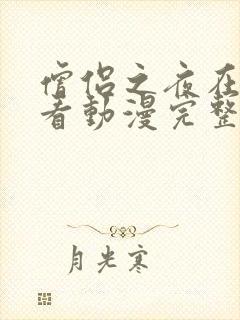 僧侣之夜在
看動漫完整
月光寒